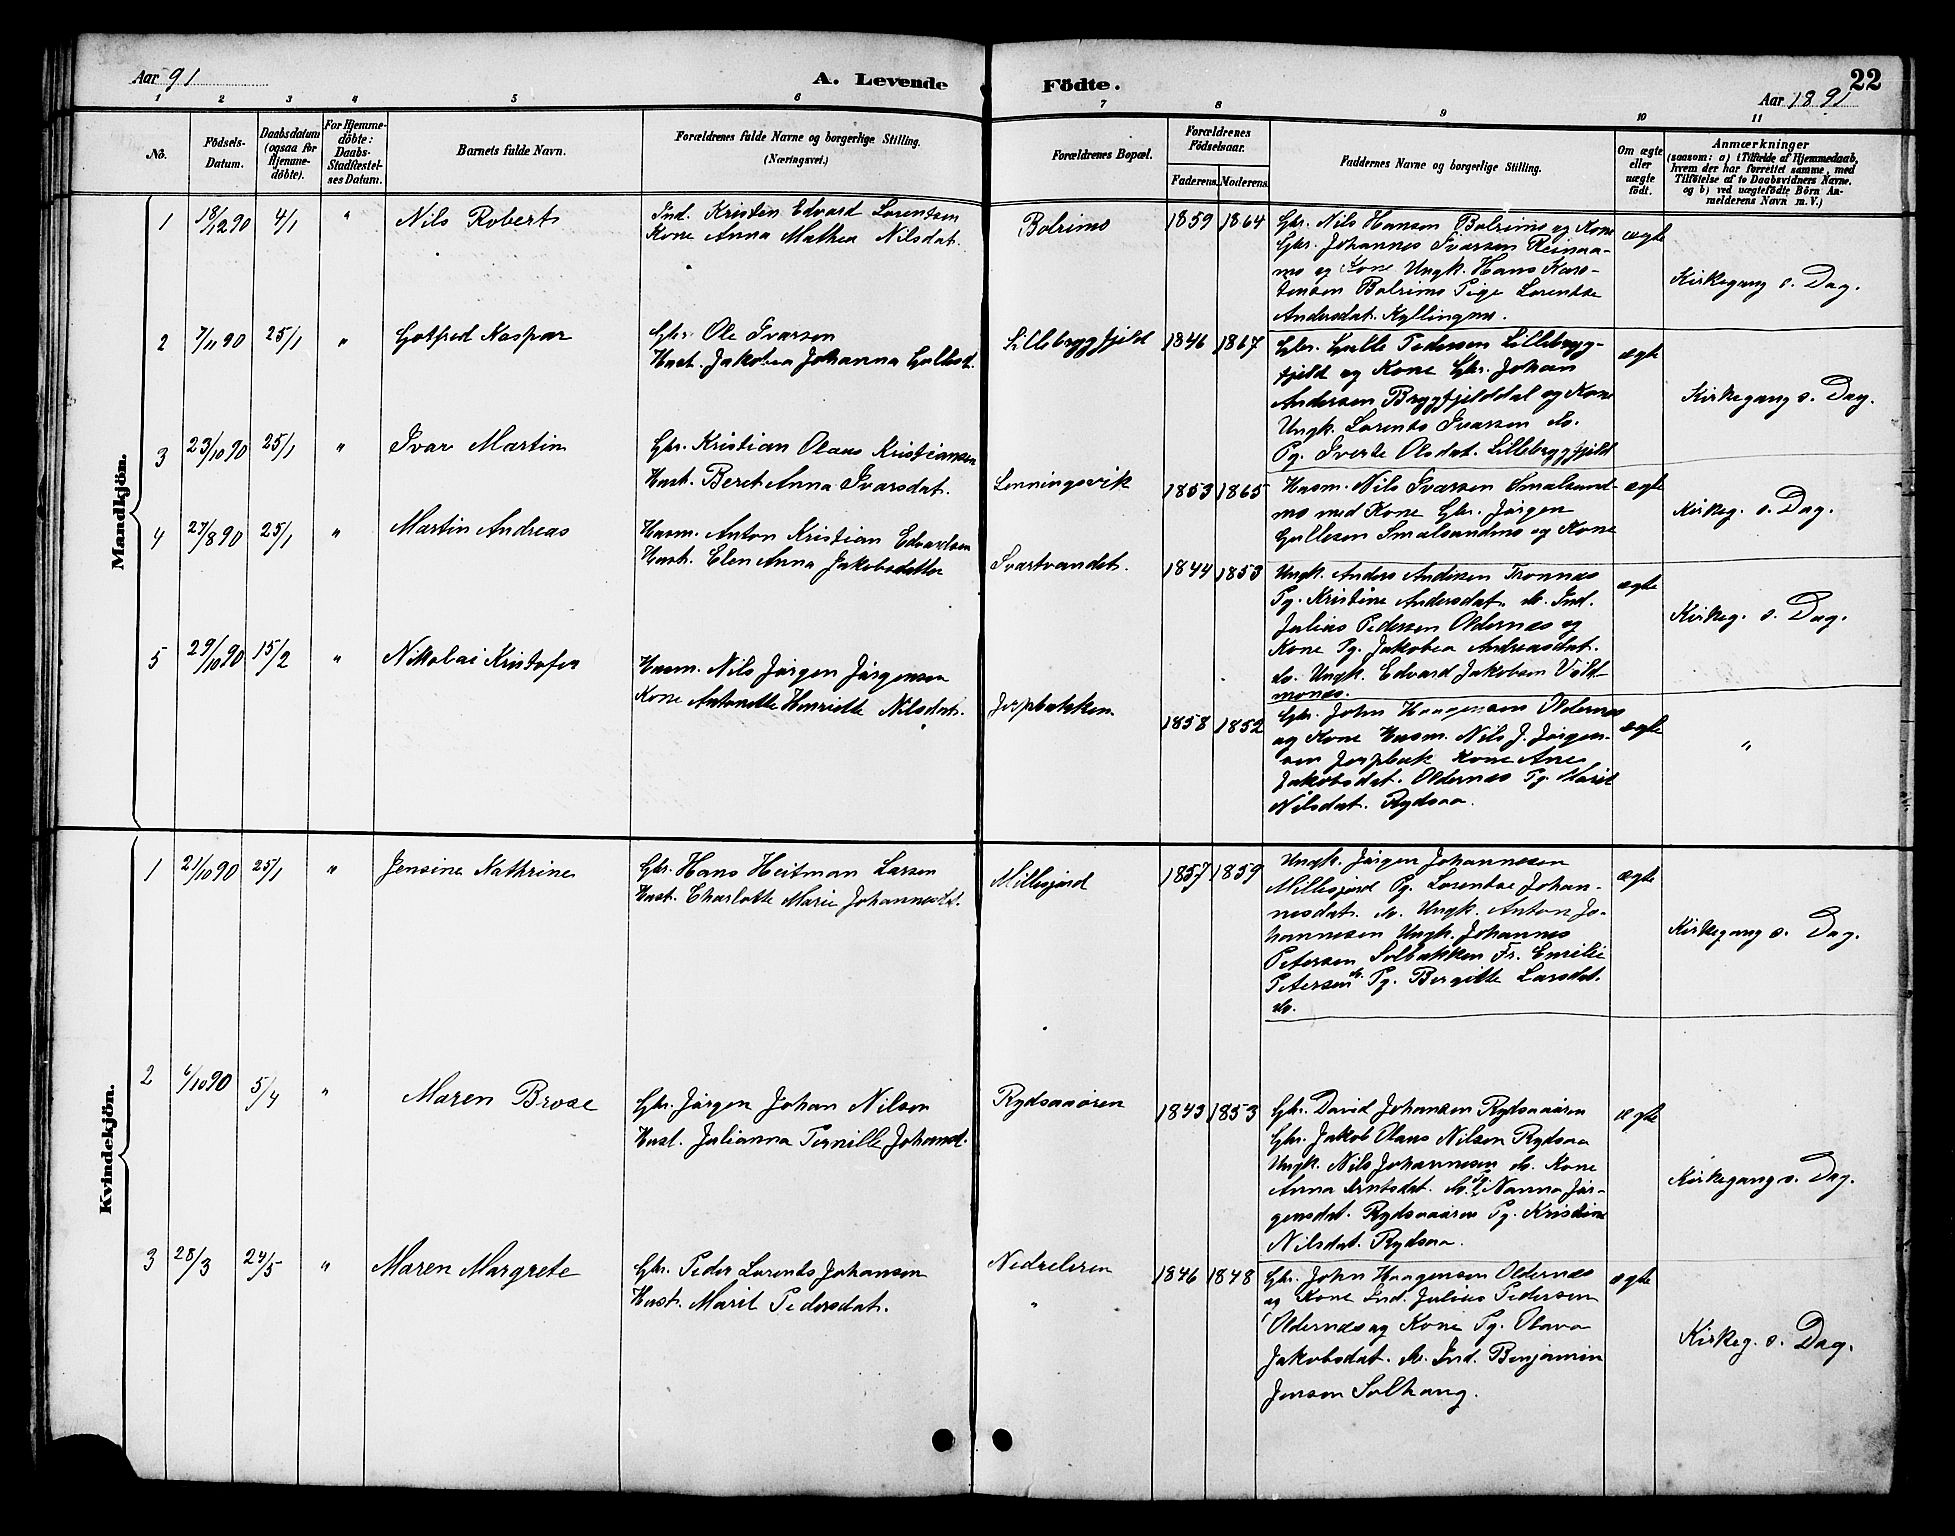 Aar 91
A. Levende
Födte.
22
Aar 1891
1 2 3 4 5 6 7 8 9 10 11
No.
Födsels-
Datum.
Daabsdatum
(ogsaa for
Hjemme-
döbte).
For Hjemme-
döbte:
Daabs-
Stadfæstel-
ses Datum.
Barnets fulde Navn.
Forældrenes fulde Navne og borgerlige Stilling.
(Næringsvei.)
Forældrenes Bopæl.
Forældrenes
Födselsaar.
Faderens. Moderens.
Faddernes Navne og borgerlige Stilling.
Om ægte
eller
uægte
födt.
Anmærkninger
(saasom: a) i Tilfælde af Hjemmedaab,
hvem der har forrettet samme, med
Tilföielse af to Daabsvidners Navne,
og b) ved uægtefödte Börn An-
melderens Navn m. V.)
Mandkjön.
1 18/12 90 4/1 " Nils Robert
Ind. Kristen Edvard Lorentsen
Kone Anna Mathea Nilsdat.
Bolrimo 1859 1864
Gbr. Nils Hansen Bolrimo og Kone
Gbr. Johannes Ivarsen Reinaa-
mo og Kone Ungk. Hans Kars-
tensen Bolrimo Pige Lorentse
Andersdat. Kyllingmo.
ægte
Kirkegang s. Dag.
2 7/11 90 25/1 " Gotfred Kaspar
Gbr. Ole Ivarsen
Hust. Jakobea Johanna Gullesd.
Lillebryggfjeld 1846 1867
Gbr. Gulle Pedersen Lillebryg-
fjeld og Kone Gbr. Johan
Andersen Bryggfjelddal og Kone
Ungk. Lorents Ivarsen do.
Pg. Sverte Olsdat. Lillebryggfjeld
ægte
Kirkegang s. Dag.
3 23/10 90 25/1 " Ivar Martin
Gbr. Kristian Olaus Kristiansen
Hust. Beret Anna Ivarsdat.
Lenningsvik 1853 1865
Husm. Nils Ivarsen Smalsund-
mo med Kone Gbr. Jörgen
Gullesen Smalsundmo og Kone
ægte
Kirkeg. s. Dag.
4 27/8 90 25/1 " Martin Andreas
Husm. Anton Kristian Edvardsen
Hust. Elen Anna Jakobsdatter
Svartvandet. 1844 1853
Ungk. Anders Andersen Tronnæs
Pg. Kristine Andersdat. do. Ind.
Julius Pedersen Oldernæs og
Kone Pg. Jakobea Andreasdat.
do. Ungk. Edvard Jakobsen Vold-
monæs.
ægte
Kirkeg. s. Dag.
5 29/10 90 15/2 " Nikolai Kristofer
Husm. Nils Jörgen Jörgensen
Kone Antonette Henriette Nilsdat.
Jerpbakken 1858 1852
Gbr. John Haagensen Oldernæs
og Kone Husm. Nils J. Jörgen-
sen Jerpbak Kone Ane
Jakobsdat. Oldernæs Pg. Marit
Nilsdat. Rydsaa.
ægte
"
Kvindekjön.
1 21/10 90 25/1 " Jensine Kathrine
Gbr. Hans Heitman Larsen
Hust. Charlotte Marie Johannesd.
Millesjord 1857 1859
Ungk. Jörgen Johannesen
Millesjord Pg. Lorentse Johan-
nesdat. do. Ungk. Anton Jo-
hannesen Ungk. Johannes
Petersen Solbakken Fr. Emilie
Petersen do. Pg. Bergitte Larsdat.
do.
ægte
Kirkegang s. Dag.
2 6/10 90 5/4 " Maren Brose
Gbr. Jörgen Johan Nilsen
Hust. Julianna Pernille Johansd.
Rydsaaören 1843 1853
Gbr. David Johansen Rydsaaören
Gbr. Jakob Olaus Nilsen Rydsaa
Ungk. Nils Johannesen do. Kone
Anna Arntsdat. do. Pg. Nanna Jör-
gensdat. Rydsaaören Pg. Kristine
Nilsdat. Rydsaa.
ægte
Kirkegang s. Dag.
3 28/3 24/5 " Maren Margrete
Gbr. Peder Lorents Johansen
Hust. Marit Pedersdat.
Nedreleren
"
1846 1848
Gbr. John Haagensen Oldernæs
og Kone Ind. Julius Pedersen
Oldernæs og Kone Pg. Olava
Jakobsdat. do. Ind. Benjamin
Jensen Solhaug.
ægte
Kirkeg. s. Dag.